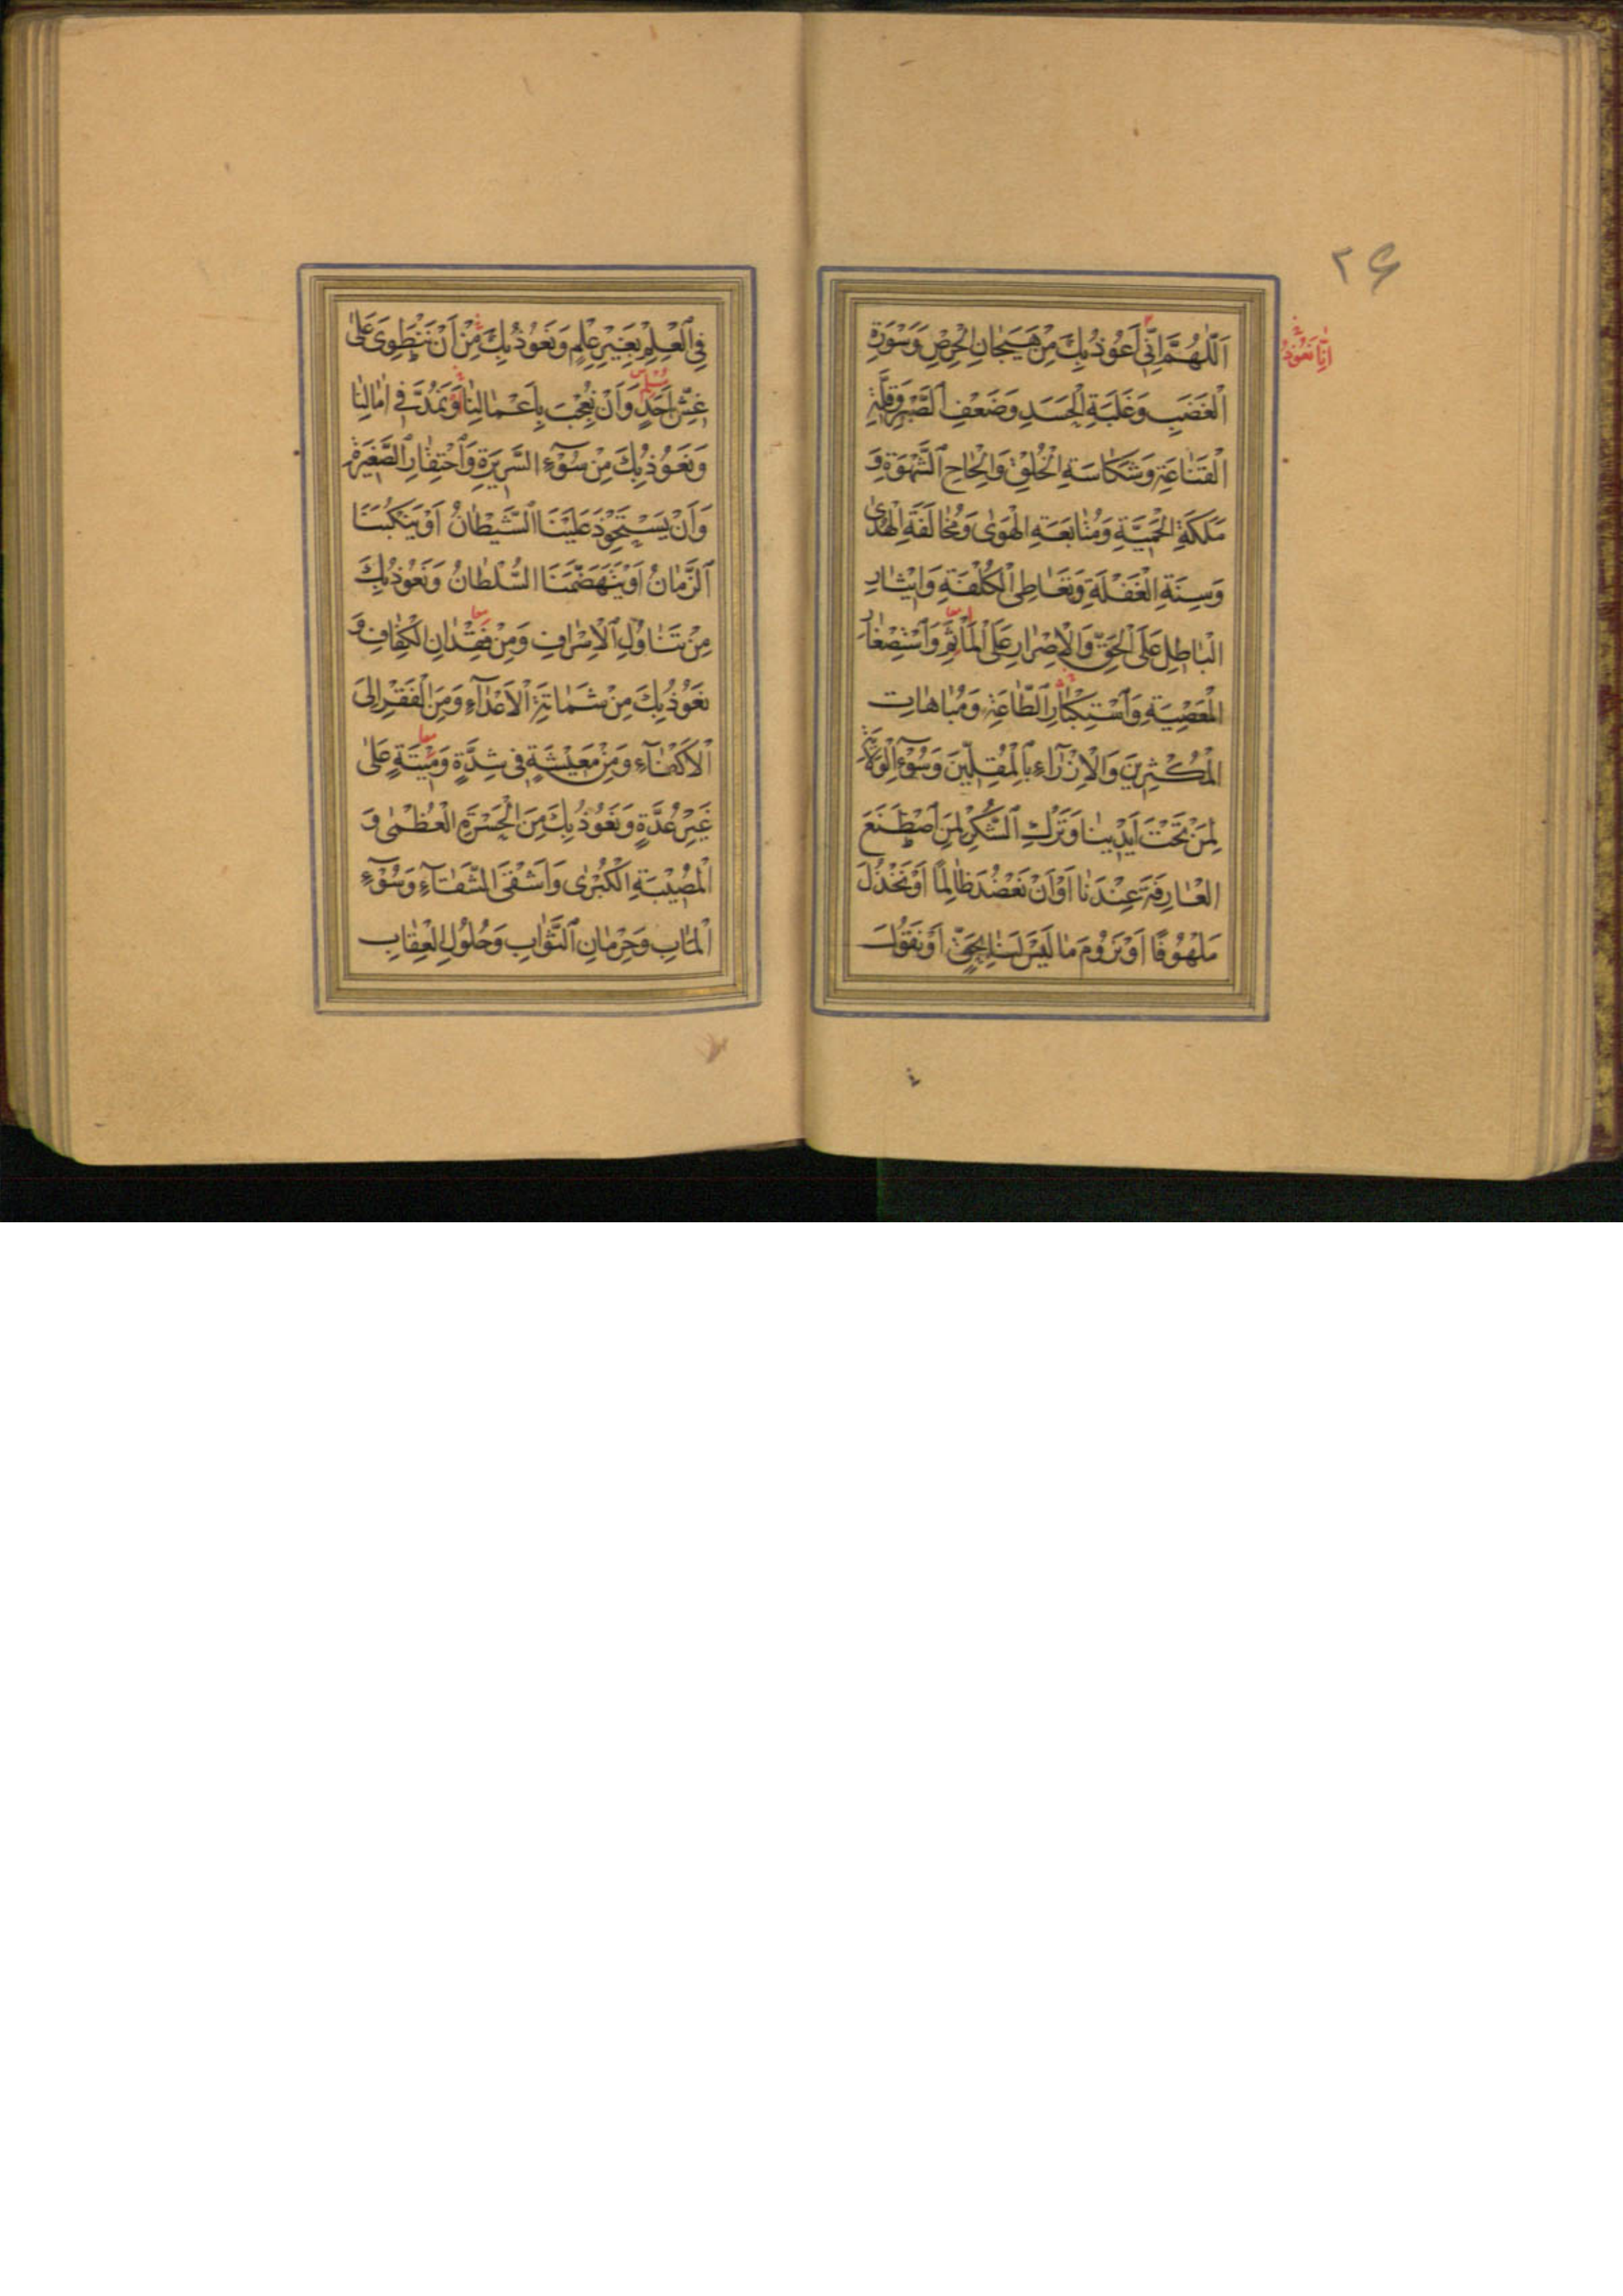 ۲۶
اَللّٰهُمَّ اِنّی اَعُوذُ بِكَ مِنْ هَیَجٰانِ الْحِرْصِ وَسَوْرَةِ
اِنّٰا نَعُوذُ
الْغَضَبِ وَغَلَبَةِ الْحَسَدِ وَضَعْفِ الصَّبْرِ وَقِلَّةِ
الْقَنٰاعَةِ وَشَكٰاسَةِ الْخُلُقِ وَاِلْحٰاحِ الشَّهْوَةِ وَ
مَلَكَةِ الْحَمِیَّةِ وَمُتٰابَعَةِ الْهَوٰی وَمُخٰالَفَةِ الْهُدٰی
وَسِنَةِ الْغَفْلَةِ وَتَعٰاطِی الْكُلْفَةِ وَاِیْثٰارِ
الْبٰاطِلِ عَلَی الْحَقِّ وَالْاِصْرٰارِ عَلَی الْمَأْثَمِ وَاسْتِصْغٰارِ
الْمَعْصِیَةِ وَاسْتِكْبٰارِ الطّٰاعَةِ وَمُبٰاهٰاتِ
الْمُكْثِرِینَ وَالْاِزْرٰآءِ بِالْمُقِلِّینَ وَسُوٓءِ الْوِلٰایَةِ
لِمَنْ تَحْتَ اَیْدِینٰا وَتَرْكِ الشُّكْرِ لِمَنِ اصْطَنَعَ
الْعٰارِفَةَ عِنْدَنٰا اَوْ اَنْ نَعْضُدَ ظٰالِمًا اَوْ نَخْذُلَ
مَلْهُوفًا اَوْ نَرُومَ مٰا لَیْسَ لَنٰا بِحَقٍّ اَوْ نَقُولَ
فِی الْعِلْمِ بِغَیْرِ عِلْمٍ وَنَعُوذُ بِكَ مِنْ اَنْ نَنْطَوِیَ عَلیٰ
غِشِّ اَحَدٍ وَاَنْ نُعْجَبَ بِاَعْمٰالِنٰا وَنَمُدَّ فِی اٰمٰالِنٰا
وَنَعُوذُ بِكَ مِنْ سُوٓءِ السَّرِیرَةِ وَاحْتِقٰارِ الصَّغِیرَةِ
وَاَنْ یَسْتَحْوِذَ عَلَیْنَا الشَّیْطٰانُ اَوْ یَنْكُبَنَا
الزَّمٰانُ اَوْ یَتَهَضَّمَنَا السُّلْطٰانُ وَنَعُوذُ بِكَ
مِنْ تَنٰاوُلِ الْاِسْرٰافِ وَمِنْ فِقْدٰانِ الْكَفٰافِ وَ
نَعُوذُ بِكَ مِنْ شَمٰاتَةِ الْاَعْدٰآءِ وَمِنَ الْفَقْرِ اِلَی
الْاَكْفٰآءِ وَمِنْ مَعِیشَةٍ فِی شِدَّةٍ وَمِیْتَةٍ عَلیٰ
غَیْرِ عُدَّةٍ وَنَعُوذُ بِكَ مِنَ الْحَسْرَةِ الْعُظْمٰی وَ
الْمُصِیْبَةِ الْكُبْرٰی وَاَشْقَی الشَّقٰآءِ وَسُوٓءِ
الْمَاٰبِ وَحِرْمٰانِ الثَّوٰابِ وَحُلُولِ الْعِقٰابِ